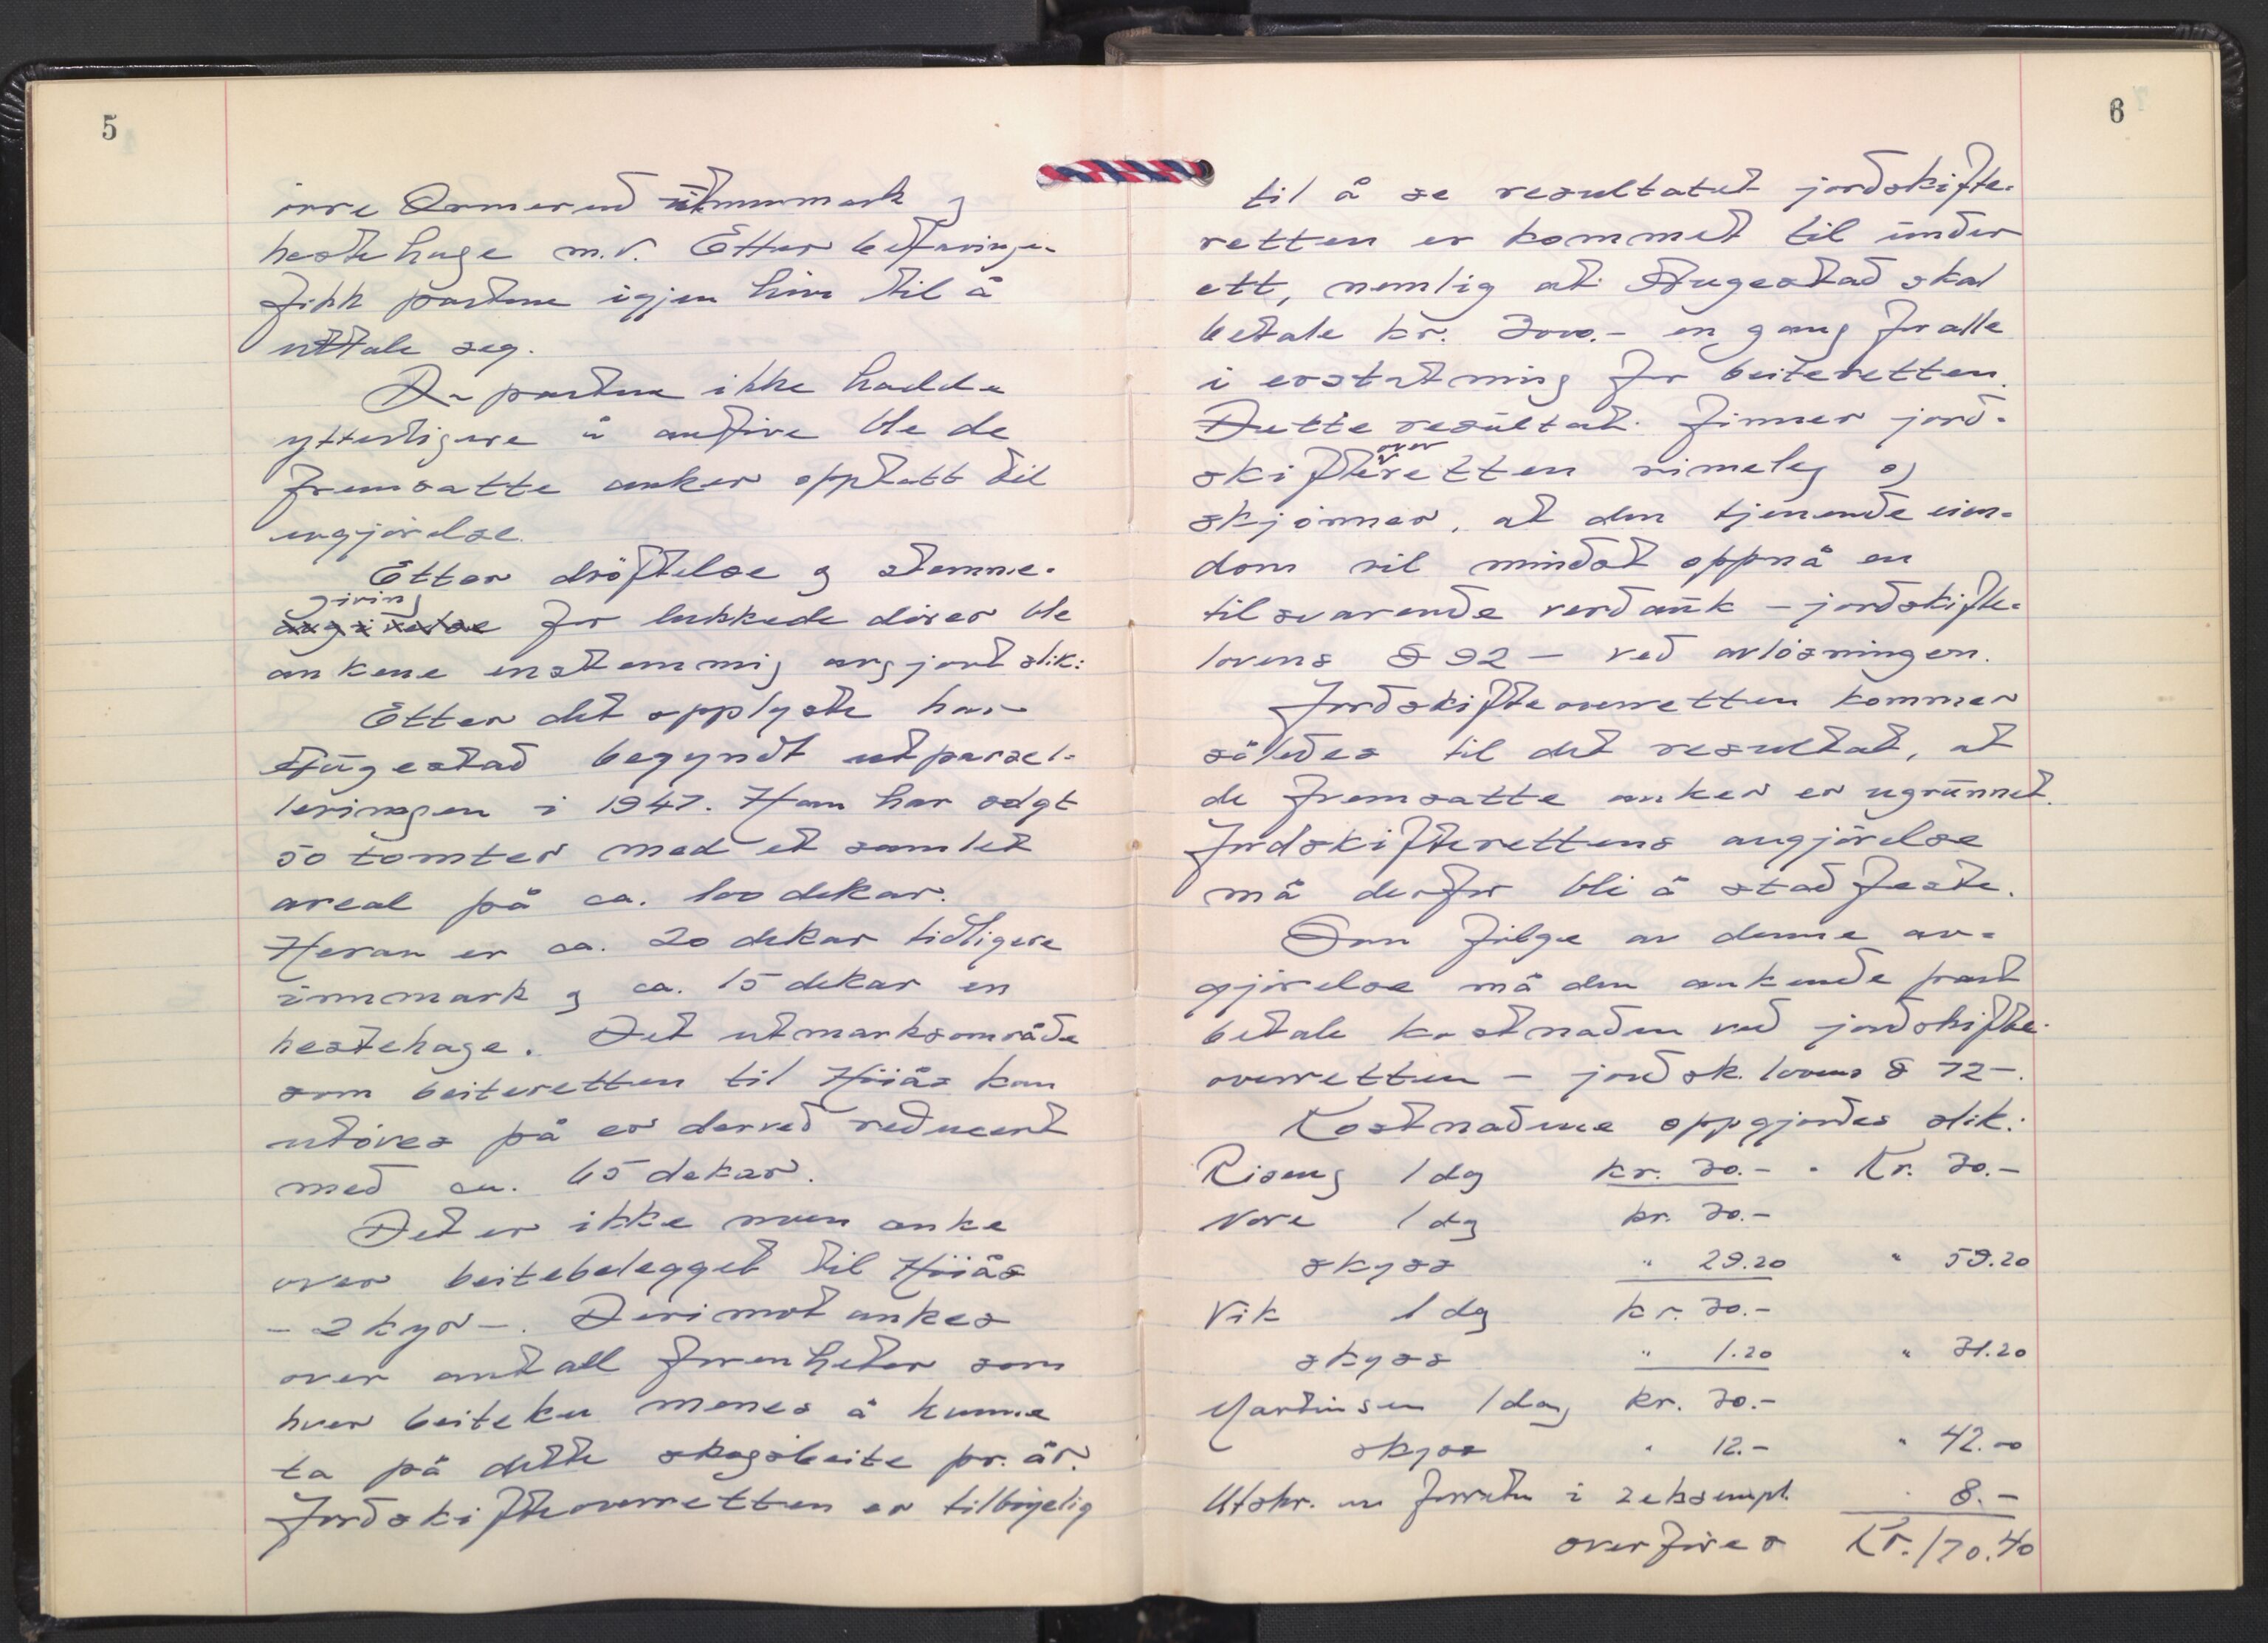 5
övre Ormerud innmark og
hestehage m.v. Etter befaringen
fikk partene igjen høve til å
uttale seg.
Da partene ikke hadde
ytterligere å anføre ble de
fremsatte anker opptatt til
avgjörelse.
Etter dröftelse og stemme-
giving for lukkede dörer ble
ankene enstemmig avgjort slik:
Etter det opplyste har
Haugestad begyndt utparsel-
leringen i 1947. Han har solgt
50 tomter med et samlet
areal på ca. 100 dekar.
Herav er ca. 20 dekar tidligere
innmark og ca. 15 dekar en
hestehage. Det utmarksområde
som beiteretten til Höiås kan
utöves på er derved reducert
med ca. 65 dekar.
Det er ikke noen anke
over beitebelegget til Höiås
- 2 kyr -. Derimot ankes
over antall forenheter som
hver beiteku menes å kunne
ta på dette skogsbeite pr. år.
Jordskifteoverretten er tilböyelig
6
til å se resultatet jordskifte-
retten er kommet til under
ett, nemlig at Haugestad skal
betale kr. 3000.- en gang for alle
i erstatning for beiteretten.
Dette resultat finner jord-
skifteoverretten rimeleg og
skjönner, at den tjenende eien-
dom vil mindst oppnå en
tilsvarende verdauk - jordskifte-
lovens § 92 - ved avlösningen.
Jordskifteoverretten kommer
således til det resultat, at
de fremsatte anker er ugrunnet.
Jordskifterettens avgjörelse
må derfor bli å stadfeste.
Som fölge av denne av-
gjörelse må den ankende part
betale kostnaden ved jordskifte-
overretten - jordsk. lovens § 72 -.
Kostnadene oppgjordes slik:
Riseng 1 dag kr. 30.- - Kr. 30.-
Nore 1 dag kr. 30.-
skyss " 29.20 " 59.20
Vik 1 dag kr. 30.-
skyss " 1.20 " 31.20
Martinsen 1 dag kr. 30.-
skyss " 12.- " 42.00
Utskr. av forretn i 2 eksempl. " 8.-
overföres Kr. 170.40